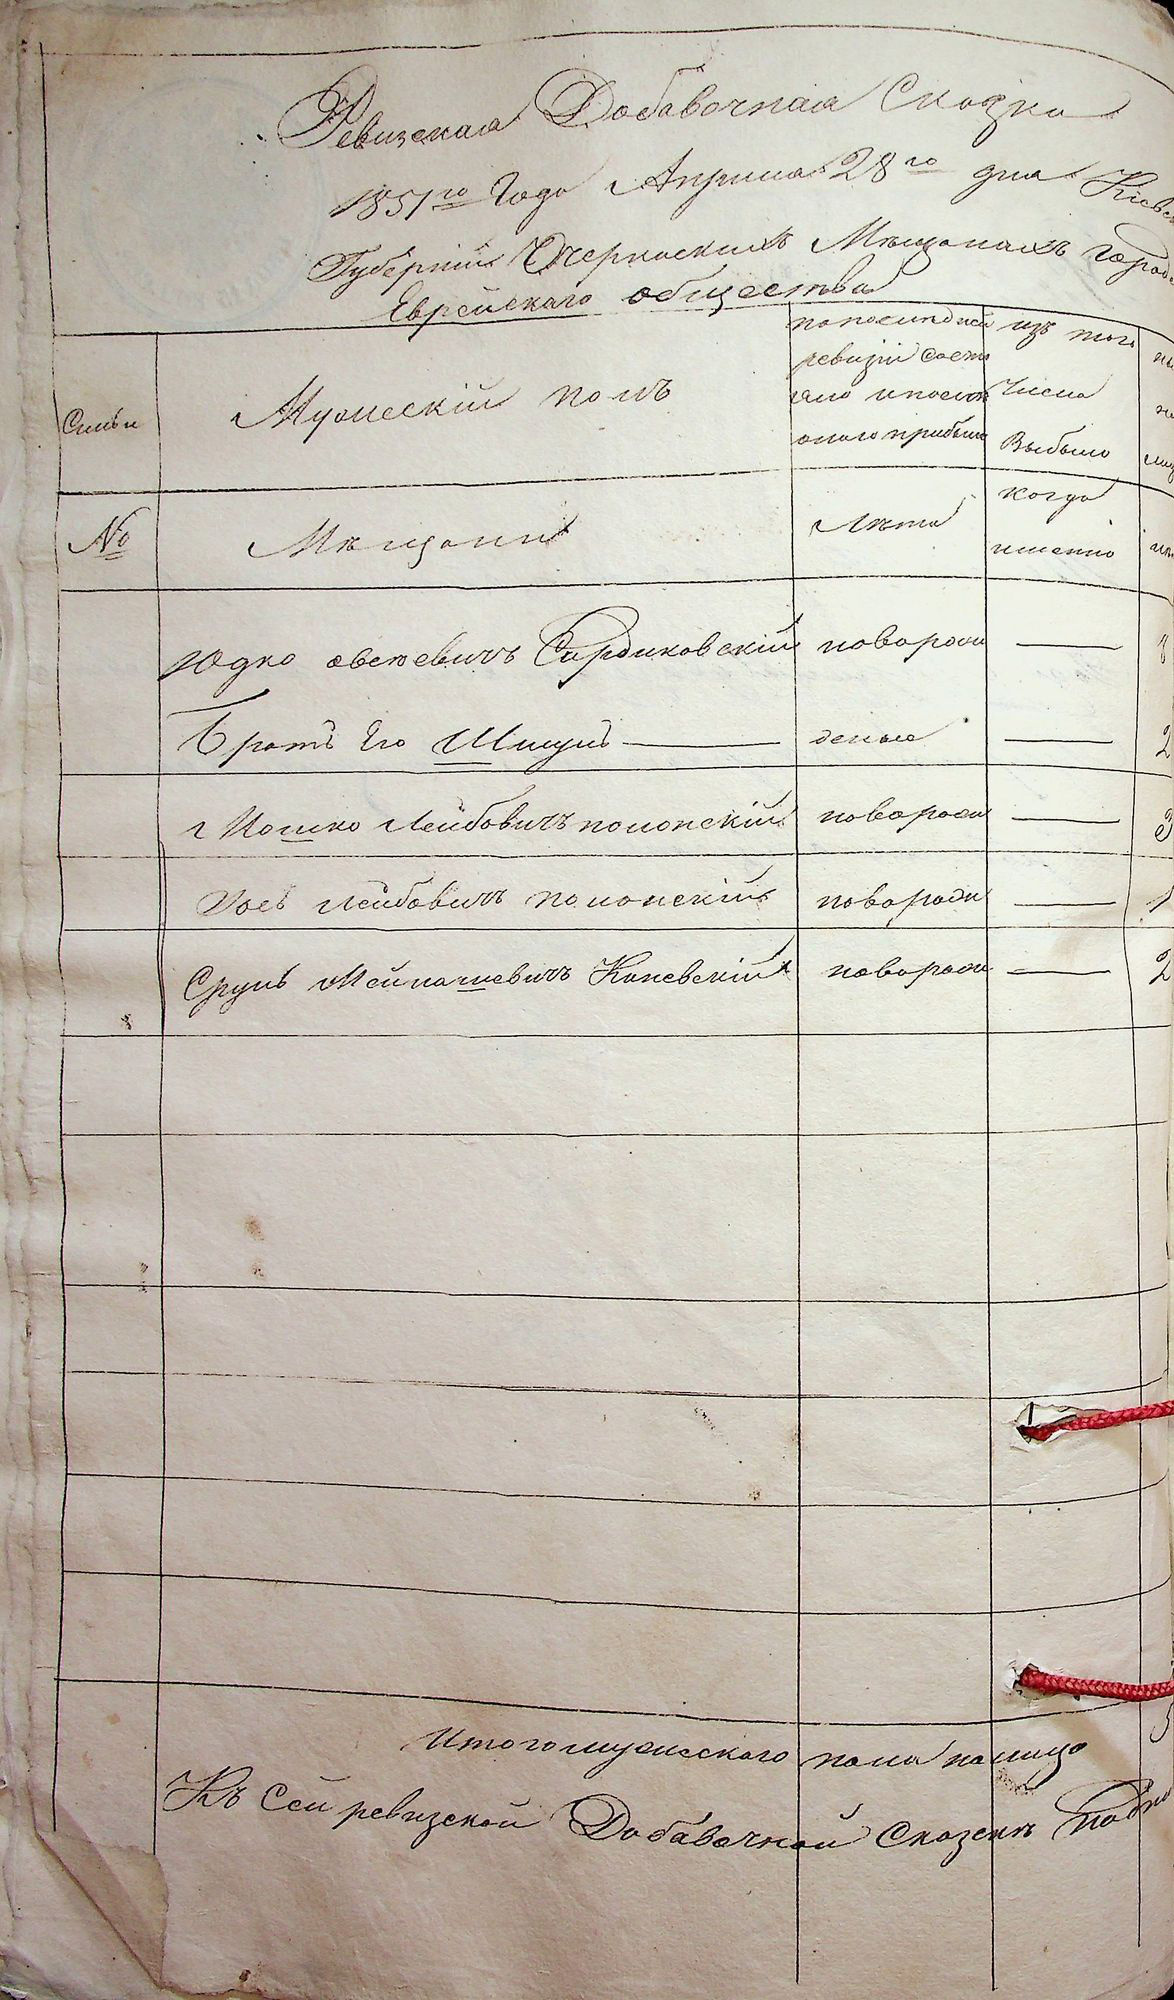 Ревизская Добавочная Сказка
1851го Года Апреля 28го дня Киевс
Губернии О Черкаских Мещанахъ город
Еврейского общества
Семьи
Мужеский полъ
по последней
ревизии состо
яло и после
оного прибыло
изъ того
Числа
Выбыло
№
Мещани
Лета
когда
именно
Юдко овсеевичъ Сардиковский новорож — 1
Братъ Его Шмуль — деные — 2
Иошко Лейбовичъ полонский новорож — 3
Лейбовичъ полонский новорож — 1
Сруль Каневский новорож — 2
Итого мужеского пола налицо 5
Къ Сей ревизской Добавочной Сказке